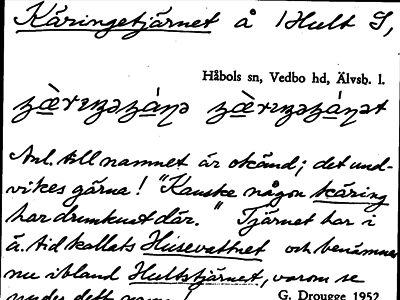 Käringetjärnet å Hult S,
Håbols sn, Vedbo hd, Älvsb. l.
Anl. till namnet är okänd; det und-
vikes gärna! "Kanske någon käring
har drunknat där." Tjärnet har i
ä. tid kallats Husevattnet och benämnes
nu ibland Hultstjärnet, varom se
G. Drougge 1952